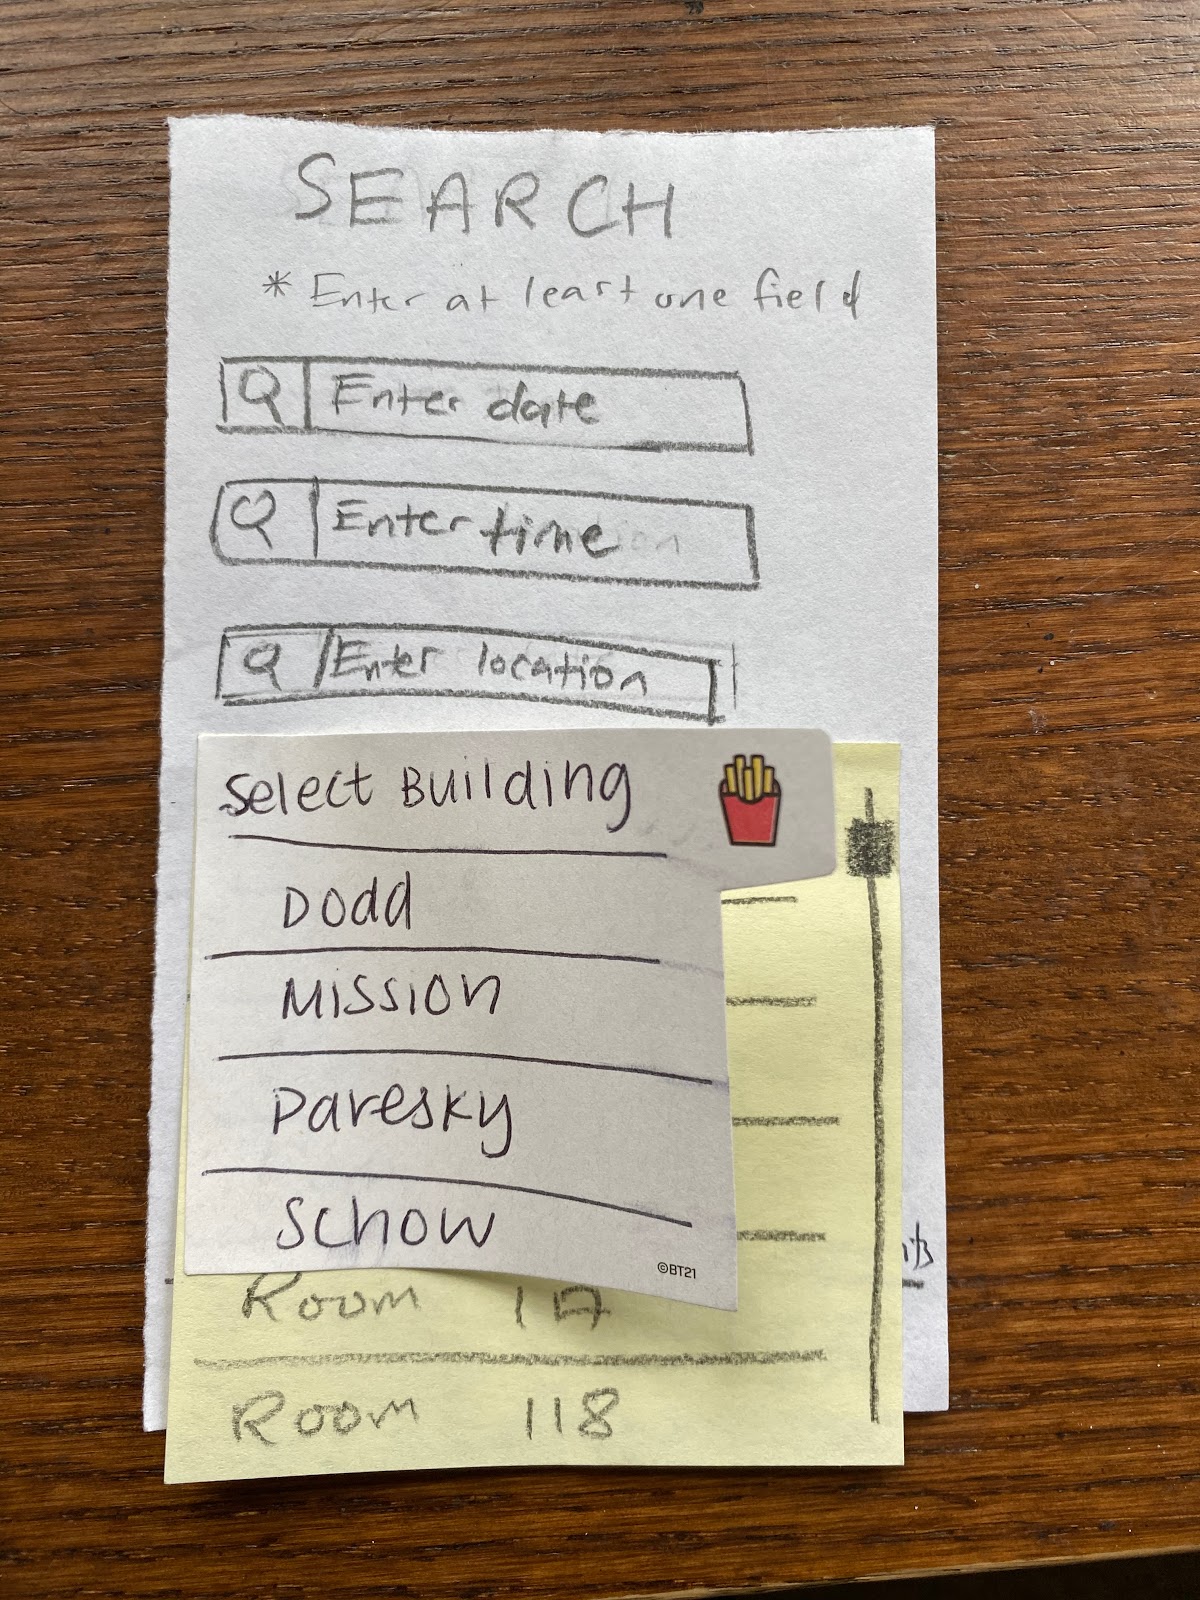 SEARCH
* Enter at least one field
Enter date
Enter time
Enter location
Select Building
Dodd
Mission
Paresky
Schow
©BT21
Room 117
Room 118